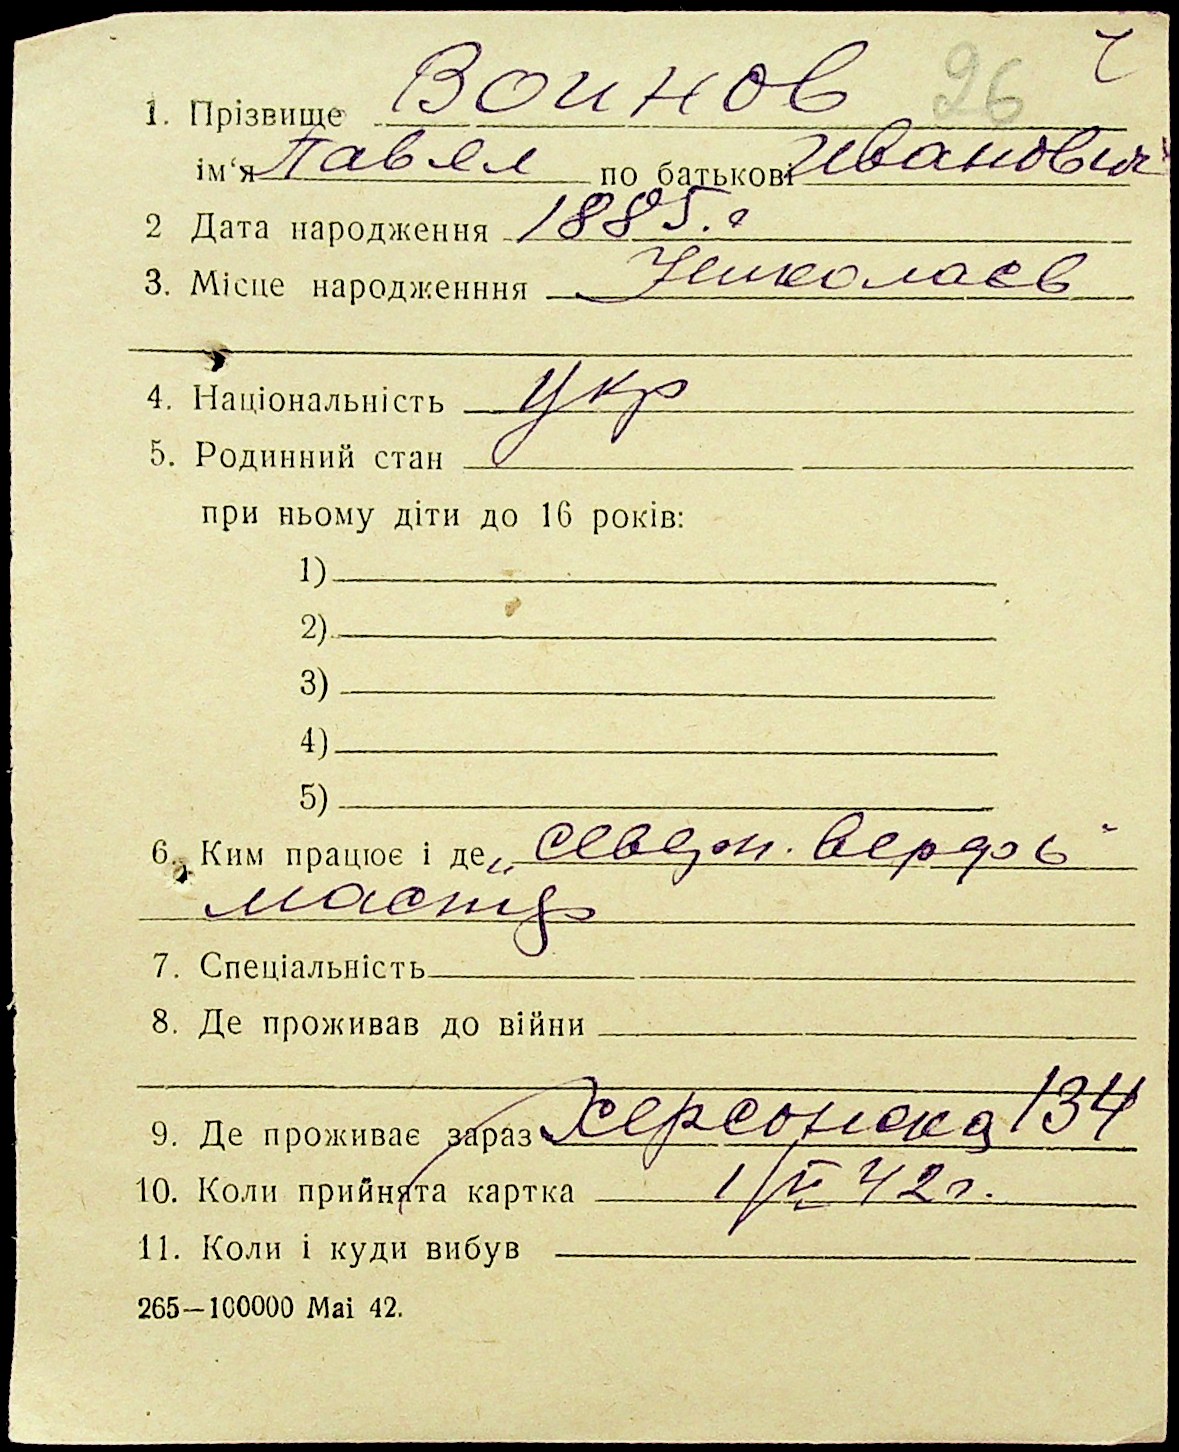 Ч
1. Прізвище Воинов 26
ім‘я Павел по батькові Иванович
2 Дата народження 1885. г
3. Місце народженння Николаев
4. Національність Укр
5. Родинний стан
при ньому діти до 16 років:
1)
2)
3)
4)
5)
6. Ким працює і де „Северн. верфь“
мастер
7. Спеціальність
8. Де проживав до війни
9. Де проживає зараз Херсонская 134
10. Коли прийнята картка 1/VI 42 г.
11. Коли і куди вибув
265—100000 Mai 42.